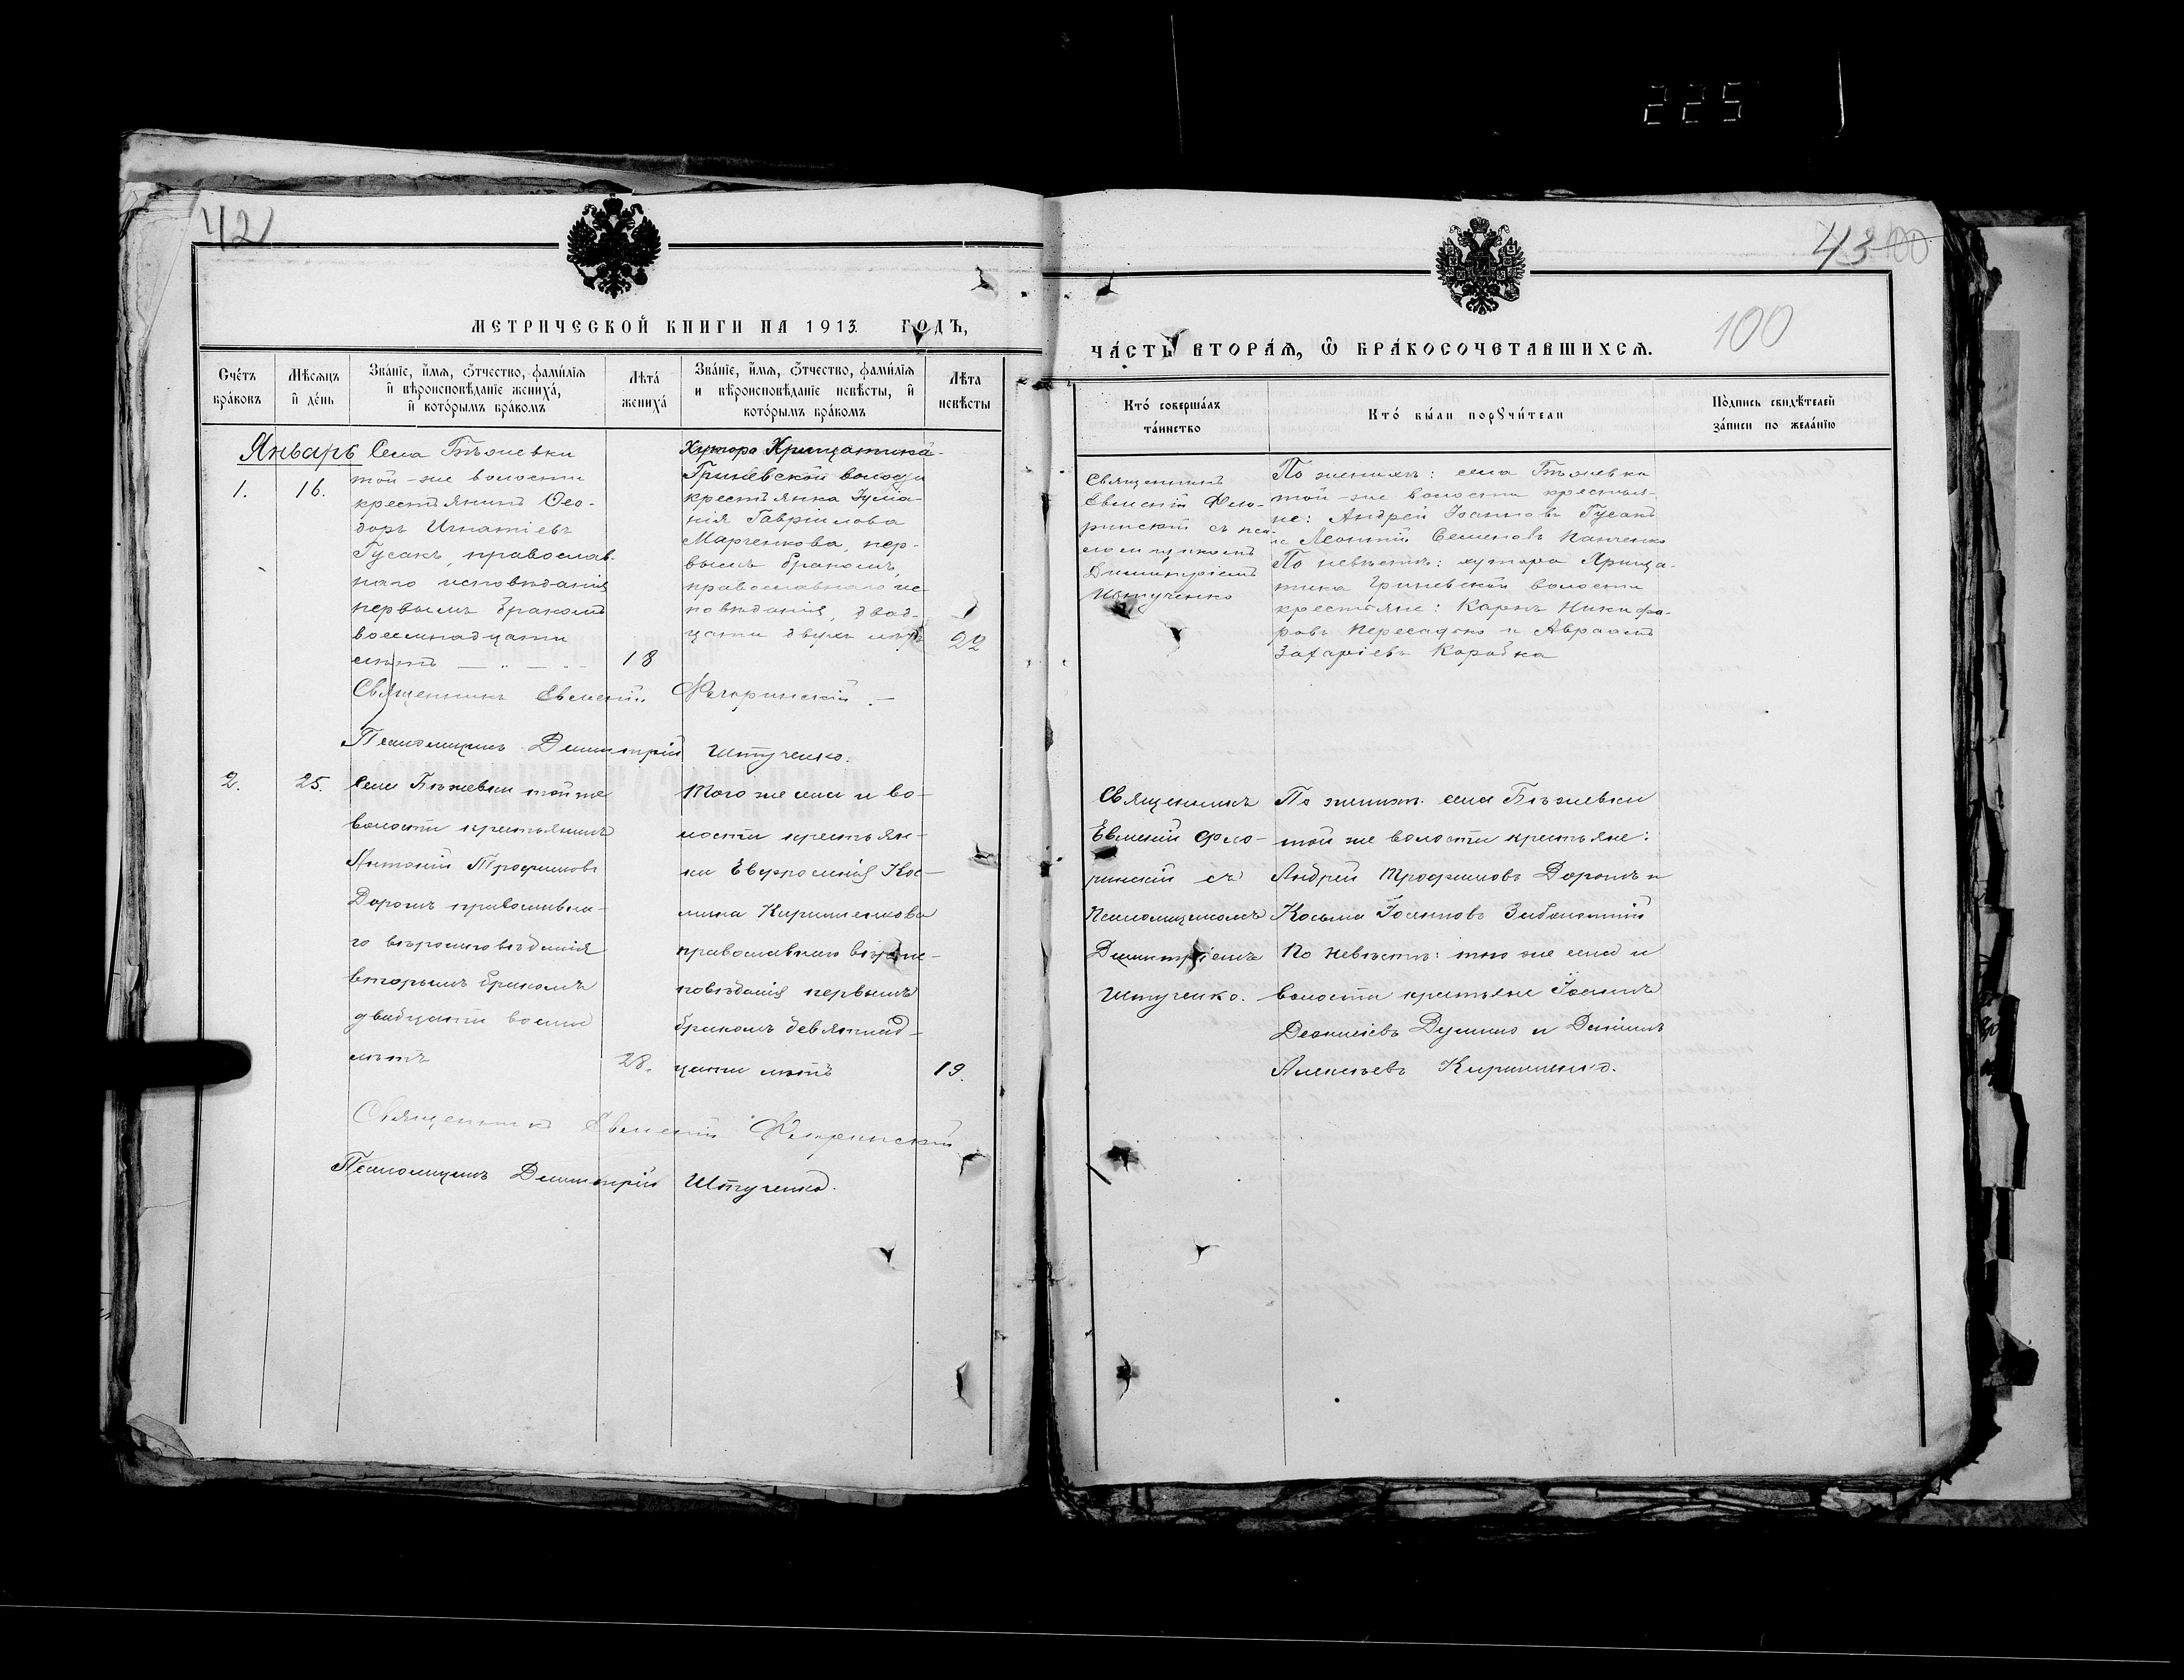 225
42
МЕТРИЧЕСКОЙ КНИГИ НА 1913 ГОДЪ,
Счётъ браковъ
Мѣсяцъ и день
Званіе, имя, отчество, фамилія и вѣроисповѣданіе жениха, и которымъ бракомъ
Лѣта жениха
Званіе, имя, отчество, фамилія и вѣроисповѣданіе невѣсты, и которымъ бракомъ
Лѣта невѣсты
Январь
1.
16.
Села Бѣжевки
той-же волости
крестьянинъ Ѳео-
доръ Игнатіевъ
Гусакъ, православ-
наго исповѣданія
первымъ бракомъ
восемнадцати
лѣтъ
18
Хутора
Гриневской волости
крестьянка Іулиа-
нія Гавріилова
Марченкова, пер-
вымъ бракомъ,
православнаго ис-
повѣданія, двад-
цати двухъ лѣтъ
22
Священникъ Евменій Флоринскій.
Псаломщикъ Димитрій Штученко.
2.
25.
Села Бѣжевки той же
волости крестьянинъ
Антоній Трофимовъ
Дорошъ православна-
го вѣроисповѣданія
вторымъ бракомъ
двадцати восьми
лѣтъ
28.
Того же села и во-
лости крестьян-
ка Евфросинія Кос-
мина Кириченкова
православнаго вѣроис-
повѣданія первымъ
бракомъ девятнад-
цати лѣтъ
19.
Священникъ Евменій Флоринскій
Псаломщикъ Димитрій Штученко.
43 100
100
ЧАСТЬ ВТОРАЯ, Ѡ БРАКОСОЧЕТАВШИХСЯ.
Кто совершалъ таинство
Кто были поручители
Подпись свидѣтелей записи по желанію
Священникъ
Евменій Фло-
ринскій съ пса-
ломщикомъ
Димитріемъ
Штученко
По женихѣ: села Бѣжевки
той-же волости крестья-
не: Андрей Іоанновъ Гусакъ
и Леонтій Семеновъ Панченко
По невѣстѣ: хутора
Гриневской волости
крестьяне: Карпъ Никифо-
ровъ и Авраамъ
Захаріевъ Коробка
Священникъ
Евменій Фло-
ринскій съ
Псаломщикомъ
Димитріемъ
Штученко.
По женихѣ: села Бѣжевки
той же волости крестьяне:
Андрей Трофимовъ Дорошъ и
Косьма Іоанновъ
По невѣстѣ: того же села и
волости крестьяне Іоаннъ
Діонисіевъ и Даніилъ
Алексѣевъ